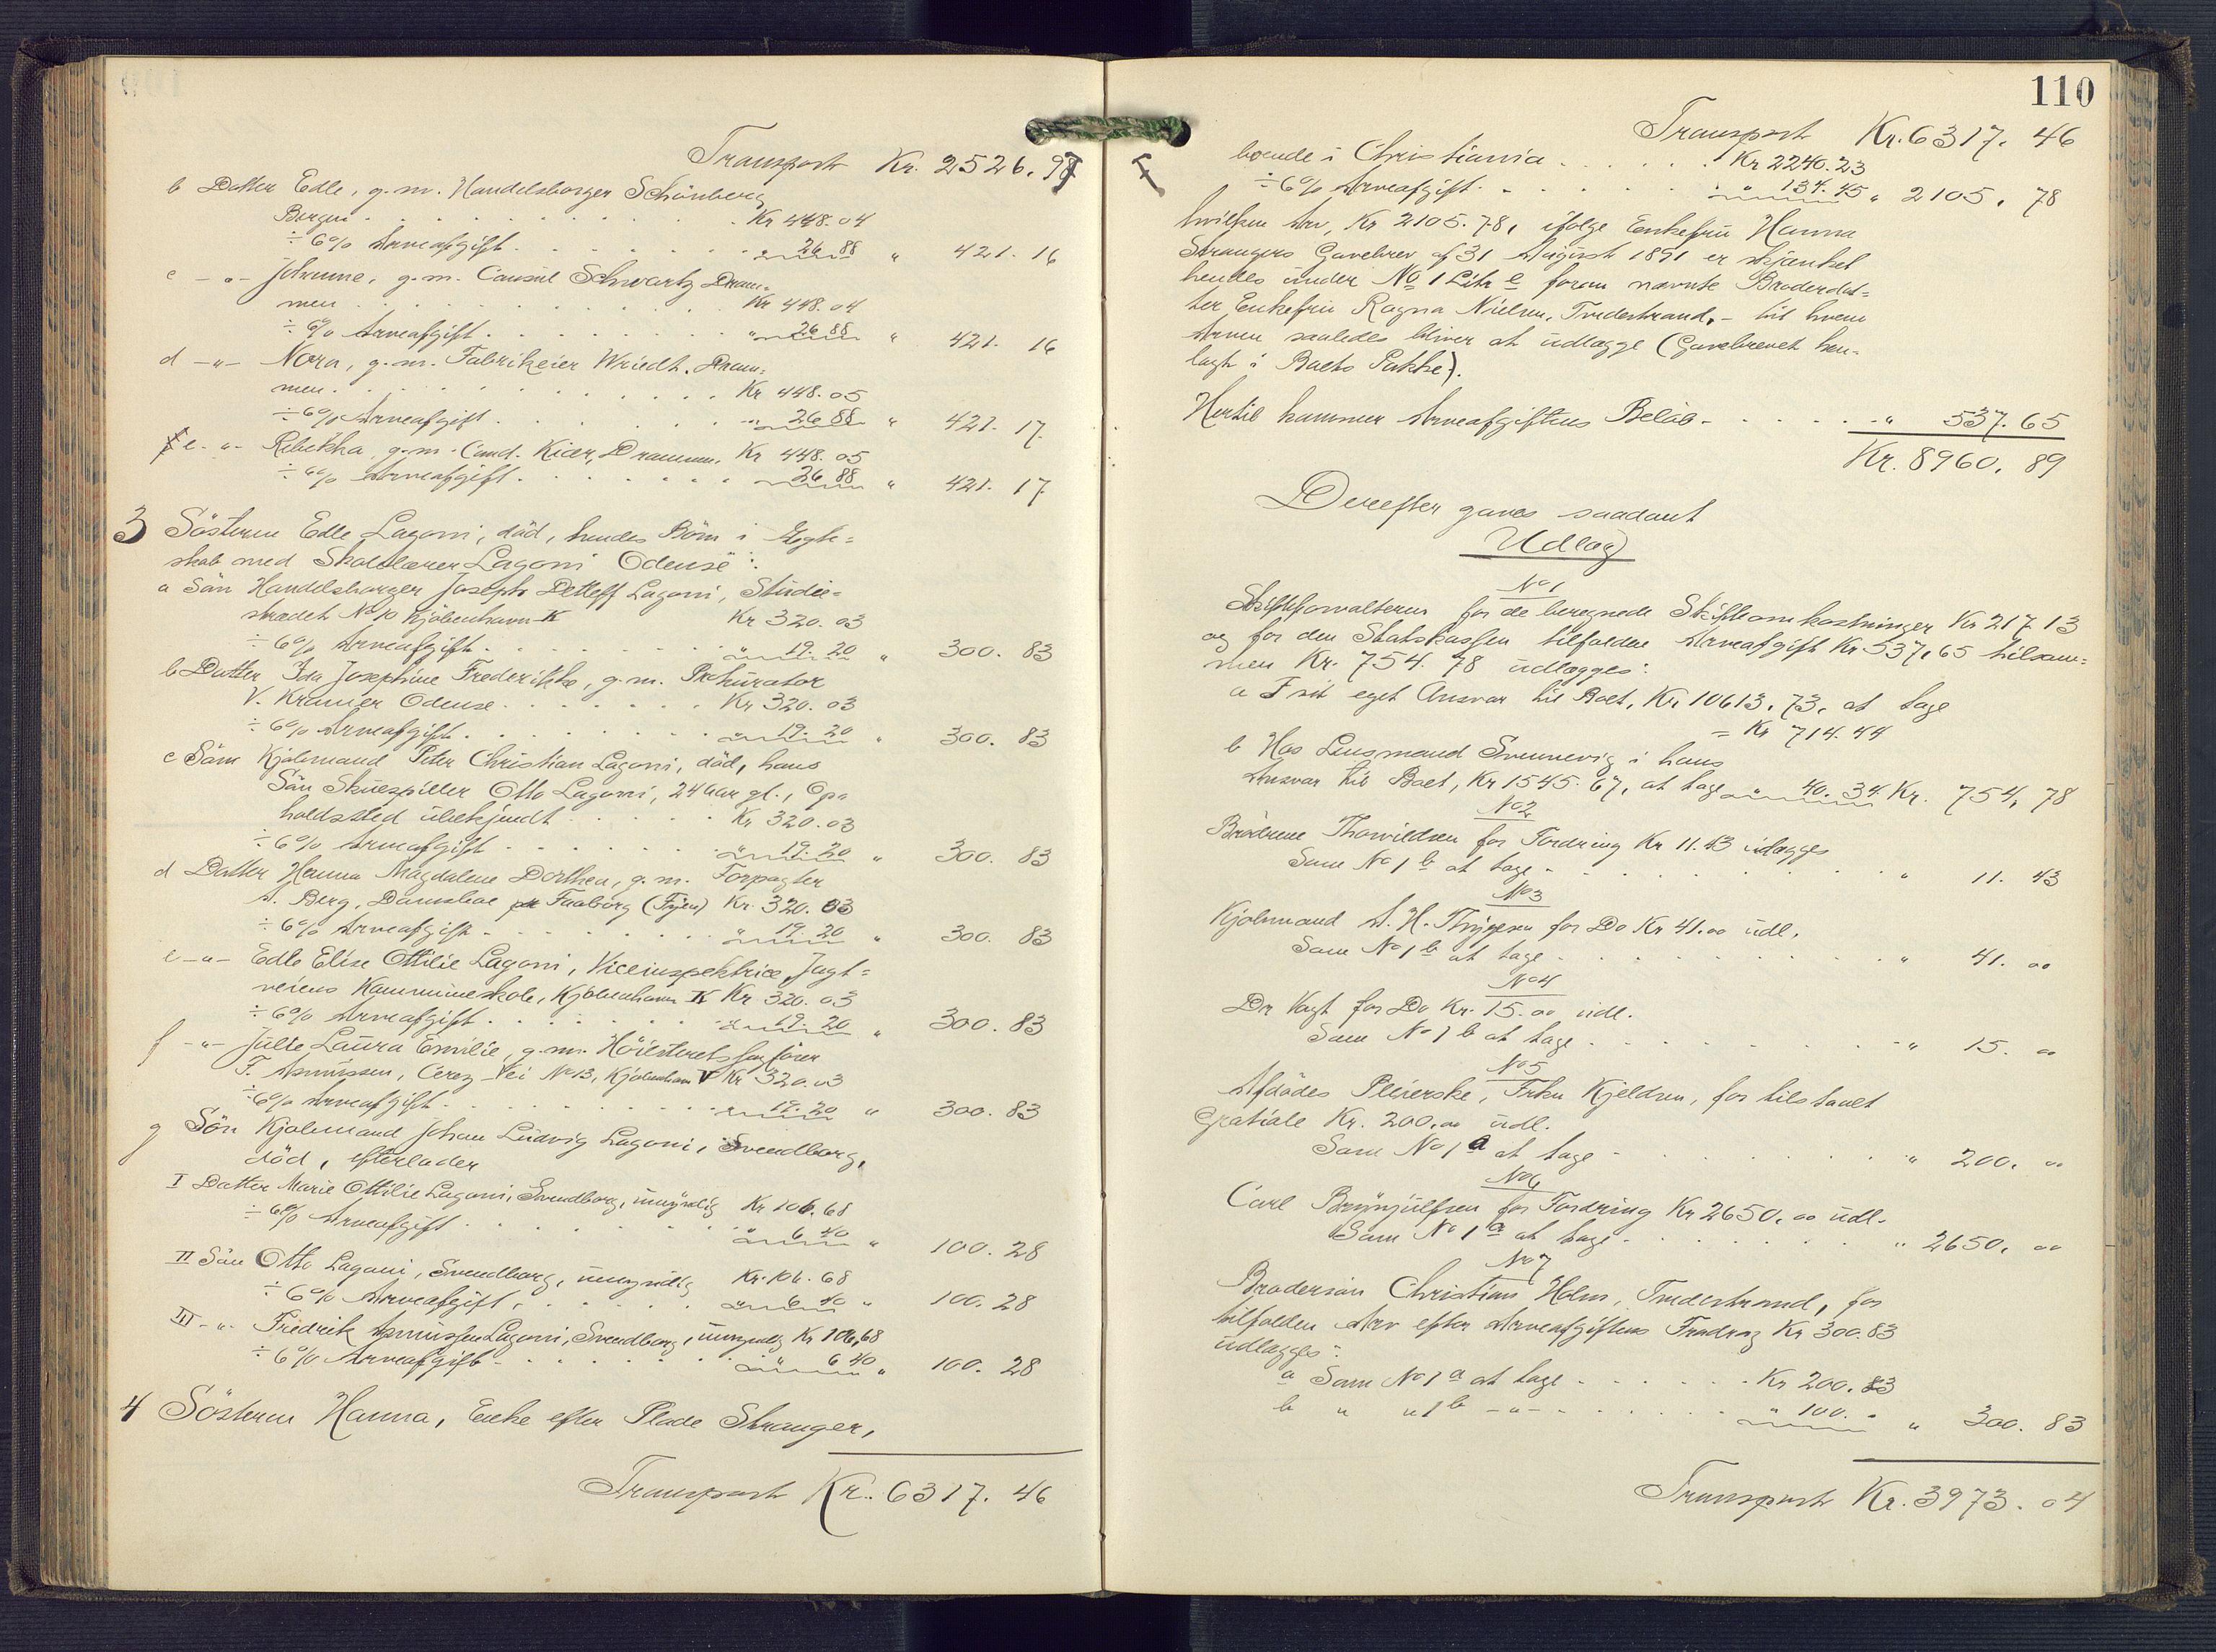 Transport Kr. 2526. 98
b Datter Edle, g. m. Handelsborger Schönberg
Bergen . . . Kr 448. 04
÷ 6% Arveafgift . . . " 26 88 " 421. 16
c - " - Johanne, g. m. Consul Schwartz Dram-
men . . . Kr 448. 04
÷ 6% Arveafgift . . . " 26 88 " 421. 16
d - " - Nora, g. m. Fabrikeier Wriedt, Dram-
men . . . Kr 448. 05
÷ 6% Arveafgift . . . " 26 88 " 421. 17
e - " - Rebekka, g. m. Cand. Kiær, Drammen, Kr 448. 05
÷ 6% Arveafgift . . . 26 88 " 421. 17
3 Søsteren Edle Lagoni, död, hendes Börn i Ægte-
skab med Skolelærer Lagoni Odense:
a Sön Handelsborger Joseph Detleff Lagoni, Studie-
strædet No 10 Kjöbenhavn K Kr 320. 03
÷ 6% Arveafgift . . . " 19. 20 " 300. 83
b Datter Ida Josephine Frederikke, g. m. Prokurator
V. Kramer Odense . . . Kr 320. 03
÷ 6% Arveafgift . . . " 19. 20 " 300. 83
c Sön Kjøbmand Peter Christian Lagoni, död, hans
Sön Skuespiller Otto Lagoni, 24 Aar gl., Op-
holdssted ubekjendt . . . Kr. 320. 03
÷ 6% Arveafgift . . . " 19. 20 " 300. 83
d Datter Hanna Magdalene Dorthea, g. m. Forpagter
A. Berg, Damsboe pr Faaborg (Fyen) Kr. 320. 03
÷ 6% Arveafgift . . . " 19. 20 " 300. 83
e - " - Edle Elise Ottilie Lagoni, Viceinspektrice, Jagt-
veiens Kommuneskole, Kjöbenhavn K Kr 320. 03
÷ 6% Arveafgift . . . " 19. 20 " 300. 83
f - " - Julie Laura Emilie, g. m. Höiesteretssagförer
F. Asmussen, Vei No 13, Kjöbenhavn V Kr 320. 03
÷ 6% Arveafgift . . . " 19. 20 " 300. 83
g Sön Kjøbmand Johan Ludvig Lagoni, Svendborg,
död, efterlader
I Datter Marie Ottilie Lagoni, Svendborg, umyndig Kr 106. 68
÷ 6% Arveafgift . . . " 6 40 " 100. 28
II Sön Otto Lagoni, Svendborg, umyndig Kr. 106. 68
÷ 6% Arveafgift . . . " 6 40 " 100. 28
III - " - Fredrik Asmussen Lagoni, Svendborg, umyndig Kr 106, 68
÷ 6% Arveafgift . . . " 6 40 " 100. 28
4 Søsteren Hanna, Enke efter Plade Stranger,
Transport Kr. 6317. 46
110
Transport Kr. 6317. 46
boende i Christiania . . . Kr 2240. 23
÷ 6% Arveafgift . . . " 134. 45 " 2105. 78
hvilken Arv, Kr 2105. 78, ifølge Enkefru Hanna
Strangers Gavebrev af 31 August 1891 er skjænket
hendes under No 1 Litr e foran nævnte Broderdat-
ter Enkefru Ragna Nielsen, Tvedestrand, - til hvem
Arven saaledes bliver at udlægge (Gavebrevet hen-
lagt i Boets Pakke).
Hertil kommer Arveafgiftens Beløb . . . " 537. 65
Kr. 8960. 89
Derefter gaves saadant
Udlæg
No 1
Skifteforvalteren for de beregnede Skifteomkostninger Kr 217 13
og for den Statskassen tilfaldne Arveafgift Kr 537, 65 tilsam-
men Kr. 754. 78 udlægges:
a I sit eget Ansvar til Boet, Kr. 10613. 73, at tage
= Kr 714. 44
b Hos Lensmand Svennevig i hans
Ansvar til Boet, Kr 1545. 67, at tage " 40. 34 Kr. 754, 78
No 2
Brödrene Thorvildsen for Fordring Kr 11. 43 udlægges
Som No 1 b at tage . . . " 11. 43
No 3
Kjøbmand A. H. Thygesen for Do Kr 41. 00 udl.
Som No 1 b at tage . . . " 41. 00
No 4
Dr Vogt for Do Kr. 15. 00 udl.
Som No 1 b at tage . . . " 15. 00
No 5
Afdödes Pleierske, Frkn Kjeldsen, for tilstaaet
Gratiale Kr. 200, 00 udl.
Som No 1 a at tage . . . " 200. 00
No 6
Carl Brynjulfsen for Fordring Kr 2650. 00 udl.
Som No 1 a at tage . . . " 2650. 00
No 7
Brodersön Christian Holm, Tvedestrand, for
tilfalden Arv efter Arveafgiftens Fradrag Kr 300. 83
udlægges:
a Som No 1 a at tage . . . Kr 200. 83
b " " 1 b - " - . . . " 100. " " 300. 83
Transport Kr. 3973. 04